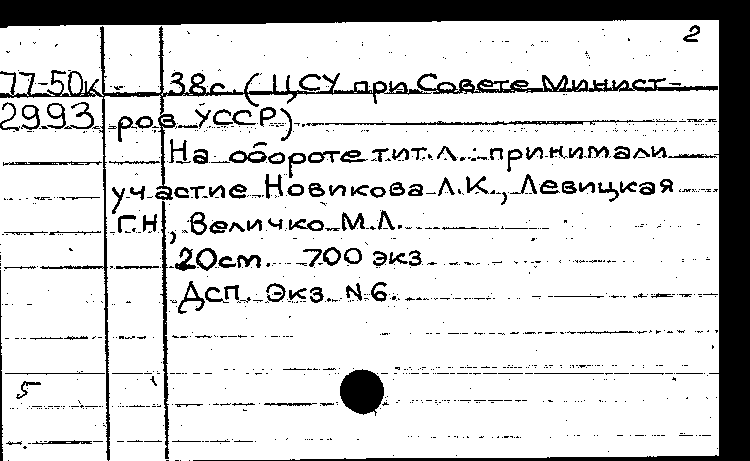 2
77-50к - 38с. (ЦСУ при Совете Минист-
2993 ров УССР)
На обороте тит.л.: принимали
участие Новикова Л.К., Левицкая
Г.Н., Величко М.Л.
20см. 700 экз
Дсп. Экз. N6.
5